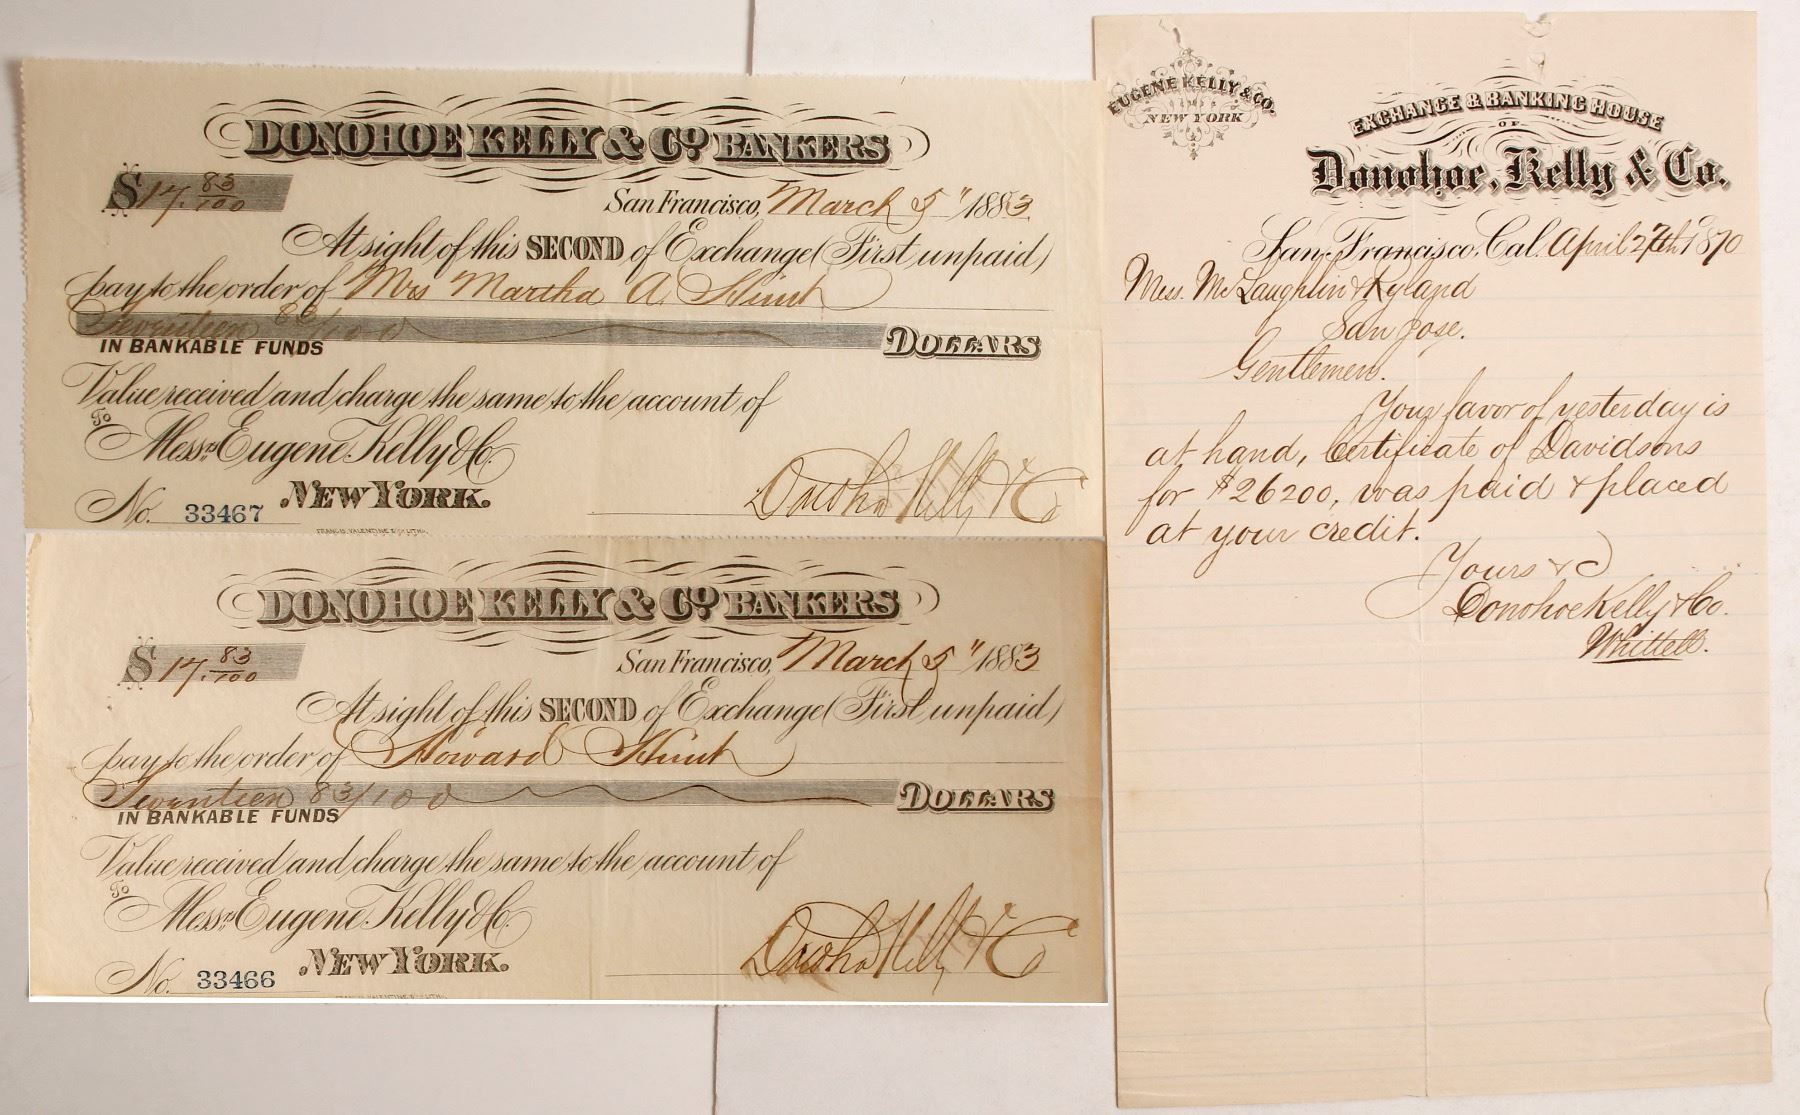 DONOHOE KELLY & Co. BANKERS
$17.83/100
San Francisco, March 5" 1883
At sight of this SECOND of Exchange (First unpaid)
pay to the order of Mrs Martha A. Hunt
Seventeen 83/100 DOLLARS
IN BANKABLE FUNDS
Value received and charge the same to the account of
To
Messrs. Eugene Kelly & Co.
NEW YORK.
No. 33467
Donohoe Kelly & Co
FRANCIS, VALENTINE & CO. LITH.
DONOHOE KELLY & Co. BANKERS
$17.83/100
San Francisco, March 5" 1883
At sight of this SECOND of Exchange (First unpaid)
pay to the order of Howard Hunt
Seventeen 83/100 DOLLARS
IN BANKABLE FUNDS
Value received and charge the same to the account of
To
Messrs. Eugene Kelly & Co.
NEW YORK.
No. 33466
Donohoe Kelly & Co
EUGENE KELLY & CO.
NEW YORK
EXCHANGE & BANKING HOUSE
OF
Donohoe, Kelly & Co.
San Francisco, Cal. April 27th 1870
Mess. McLaughlin & Ryland
San Jose.
Gentlemen.
Your favor of yesterday is
at hand, Certificate of Davidsons
for $26200, was paid & placed
at your credit.
Yours &c
Donohoe Kelly & Co.
Whittell.